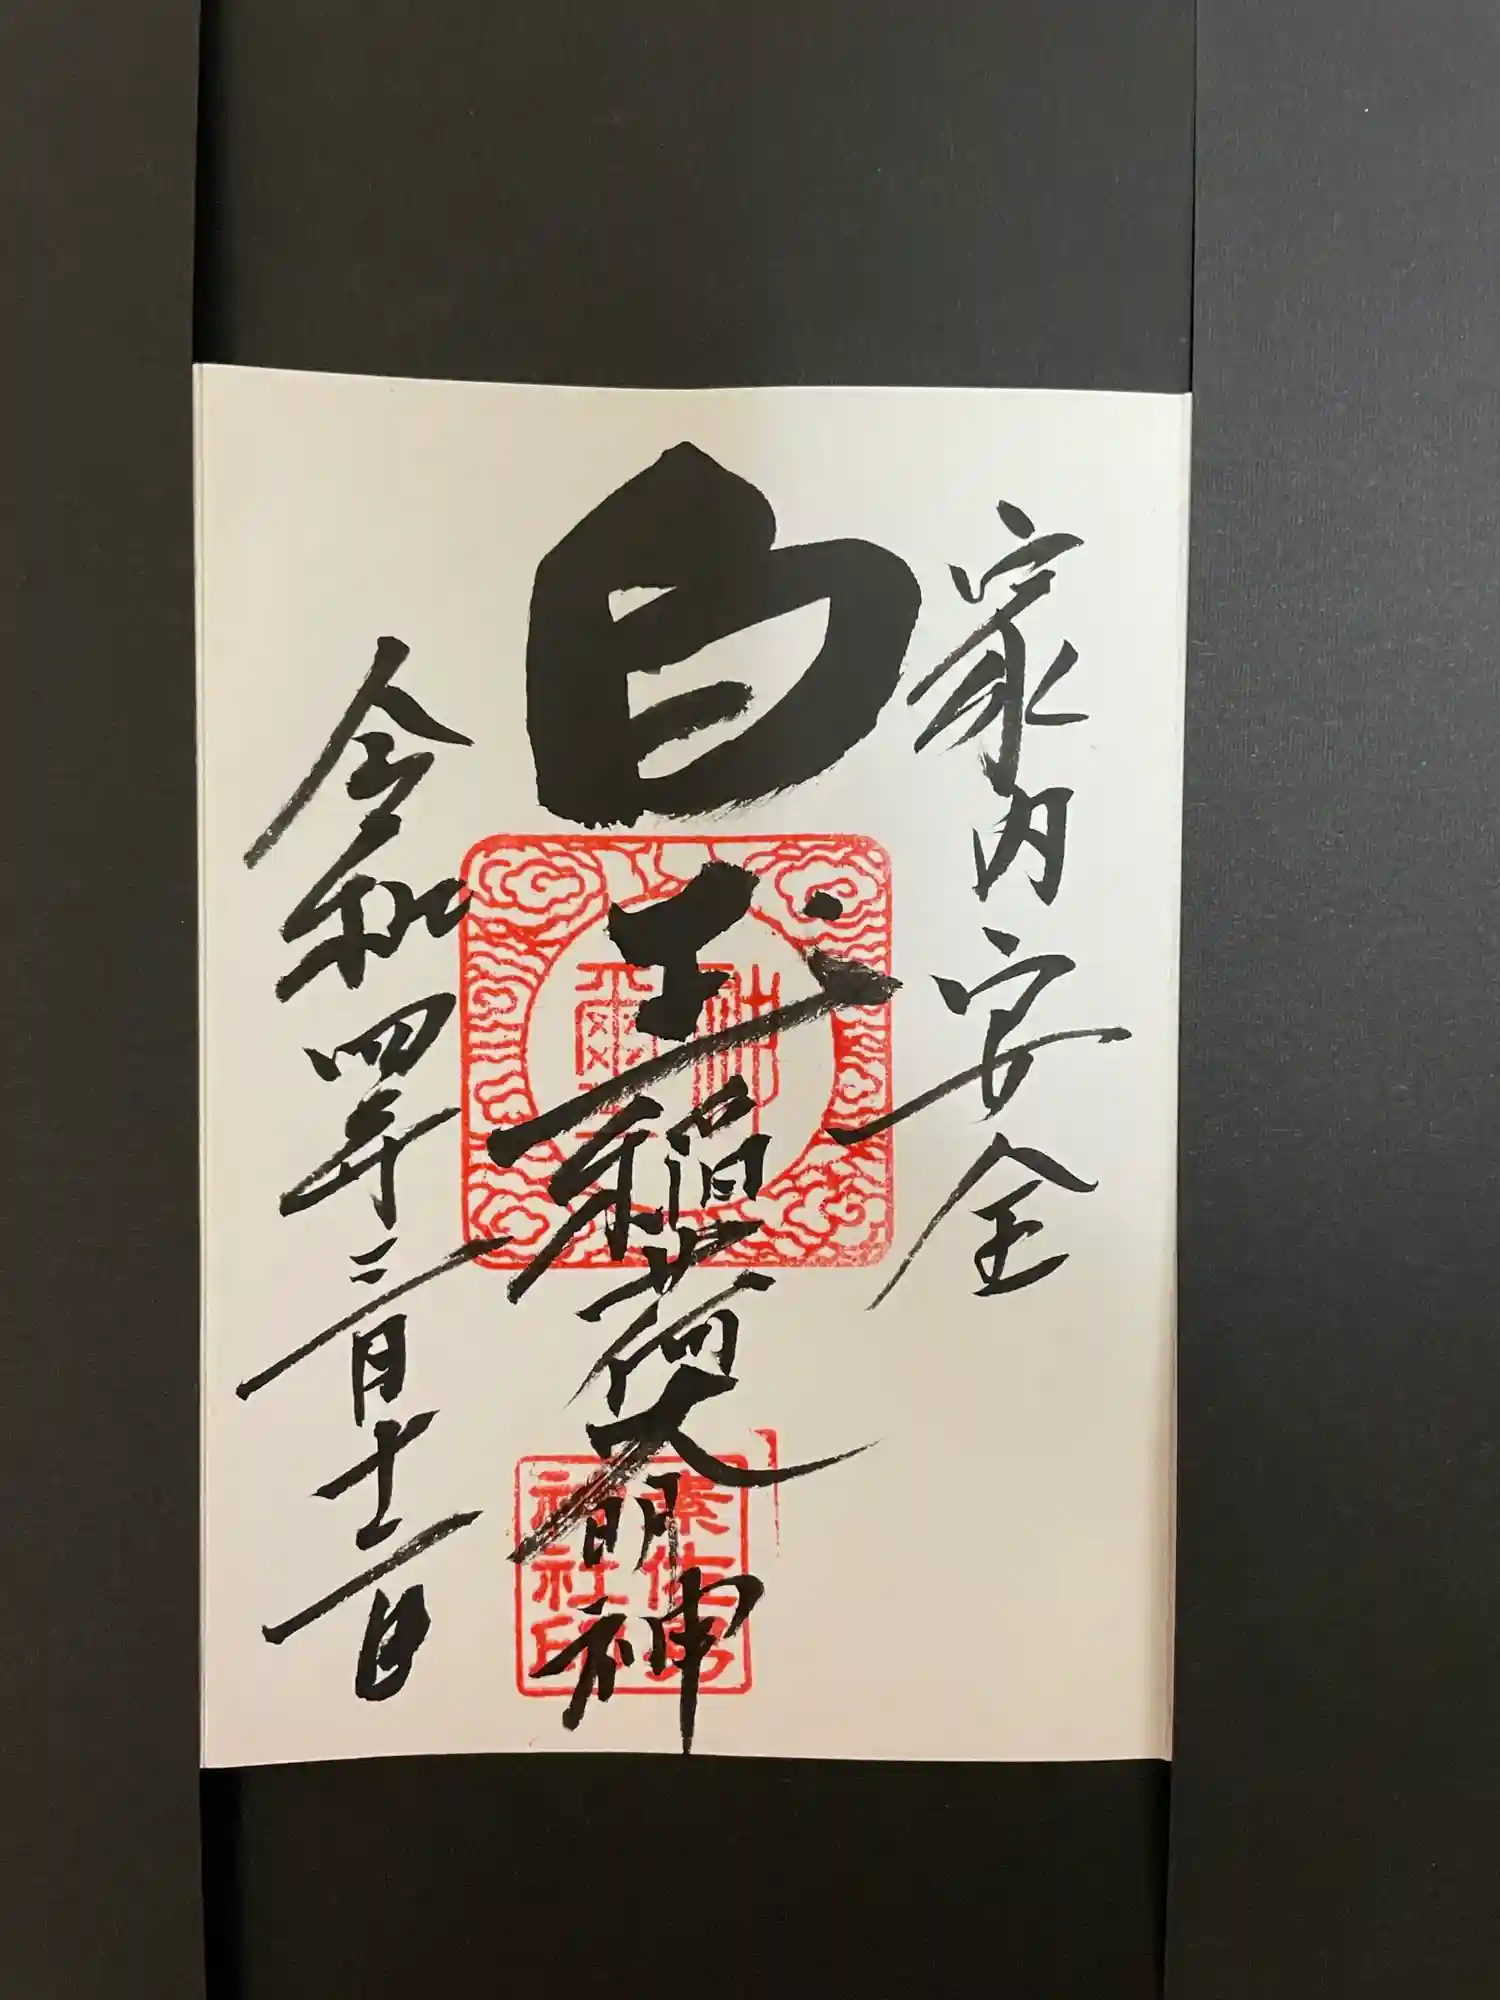 家内安全
白玉稲荷大明神
令和四年三月十二日
神璽
素佐男
神社印